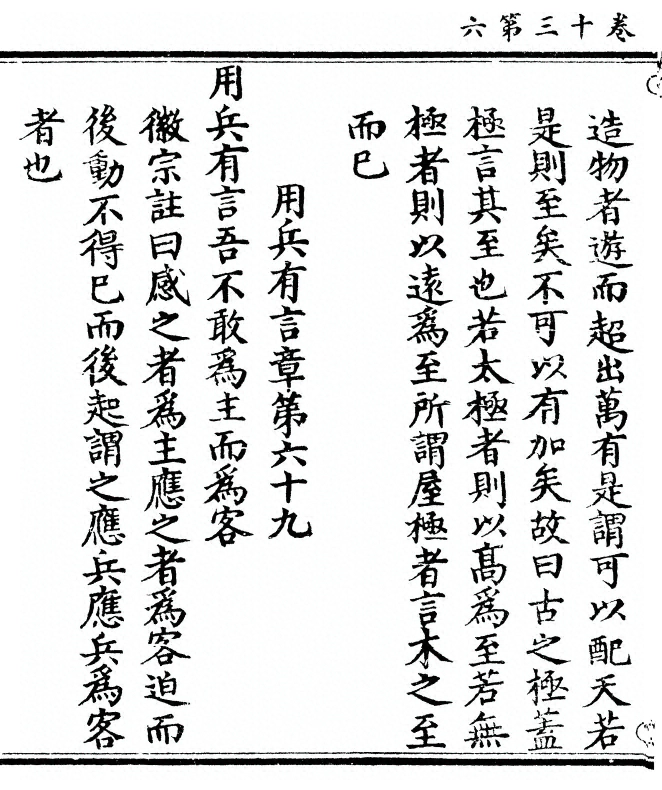 卷十三第六
造物者遊而超出萬有是謂可以配天若
是則至矣不可以有加矣故曰古之極蓋
極言其至也若太極者則以高為至若無
極者則以遠為至所謂屋極者言木之至
而已
用兵有言章第六十九
用兵有言吾不敢為主而為客
徽宗註曰感之者為主應之者為客迫而
後動不得已而後起謂之應兵應兵為客
者也